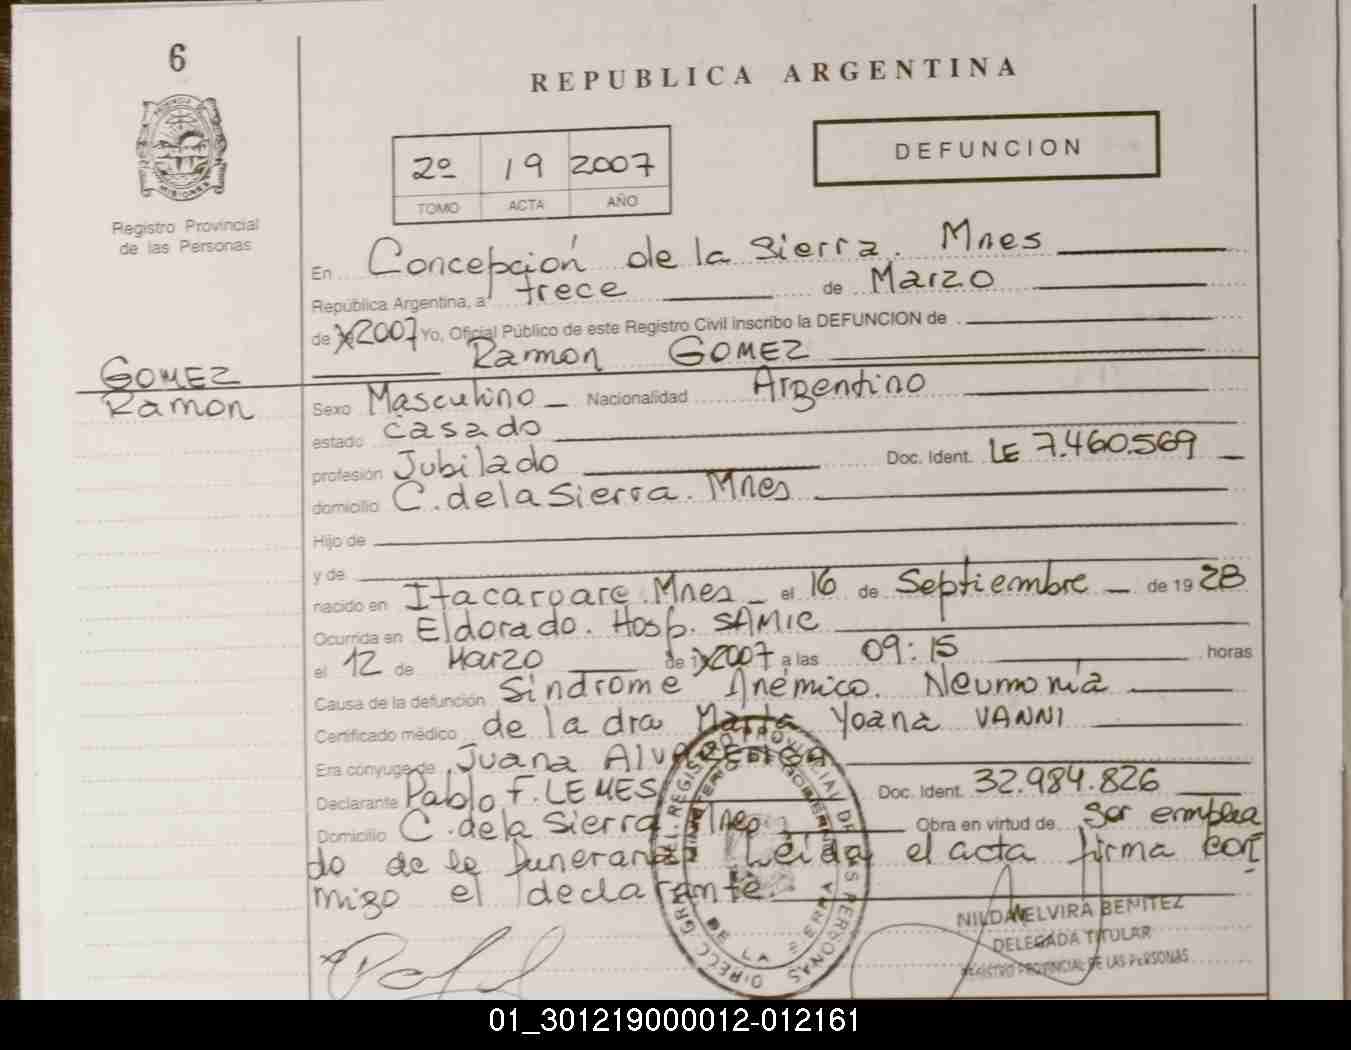 6
Registro Provincial
de las Personas
REPUBLICA ARGENTINA
2º 19 2007
TOMO ACTA AÑO
DEFUNCION
En Concepción de la Sierra. Mnes
República Argentina, a trece de Marzo
de 2007 Yo, Oficial Público de este Registro Civil inscribo la DEFUNCION de
Ramon GOMEZ
GOMEZ
Ramon
Sexo Masculino Nacionalidad Argentino
estado casado
profesión Jubilado Doc. Ident. LE 7.460.569
domicilio C. de la Sierra. Mnes
Hijo de
y de
nacido en Itacaroare. Mnes el 16 de Septiembre de 19 28
Ocurrida en Eldorado. Hosp. SAMIC
el 12 de Marzo de 2007 a las 09:15 horas
Causa de la defunción Sindrome Anémico. Neumonia
Certificado médico de la dra Marta Yoana VANNI
Era conyuge de Juana
Declarante Pablo F. LEMES Doc. Ident. 32.984.826
Domicilio C. de la Sierra Mnes Obra en virtud de Ser emplea
do de la funeraria Leida el acta firma con
migo el declarante.
NILDA ELVIRA BENITEZ
DELEGADA TITULAR
REGISTRO PROVINCIAL DE LAS PERSONAS
01_301219000012-012161